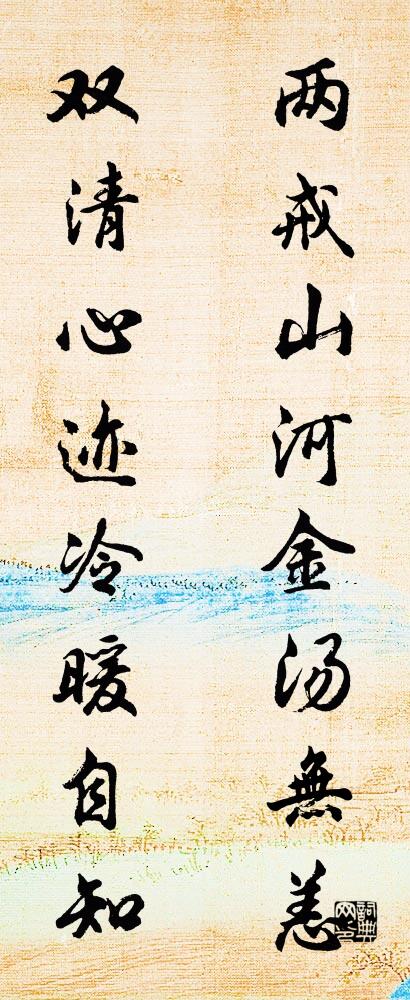 两戒山河金汤無恙
双清心迹冷暖自知
詞典网印